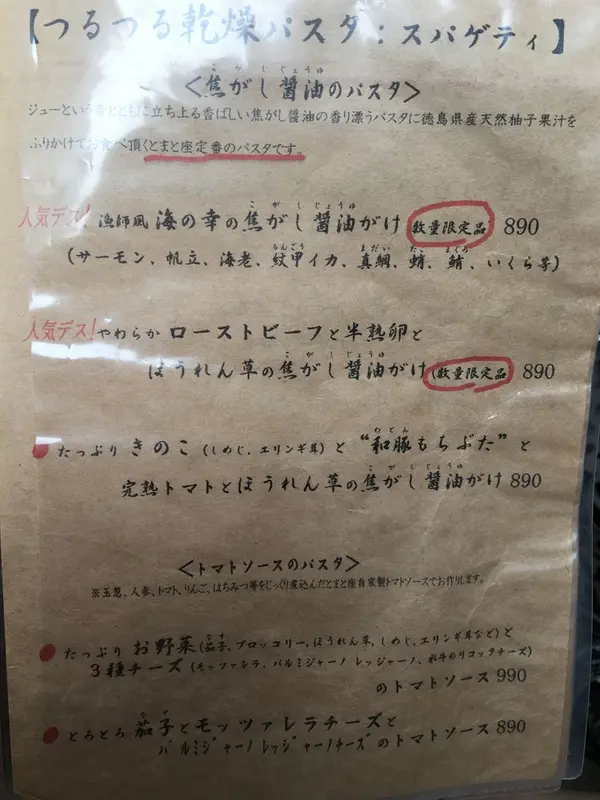 【つるつる乾燥パスタ：スパゲティ】
＜焦がし醤油のパスタ＞
こがしじょうゆ
ジューという音とともに立ち上る香ばしい焦がし醤油の香り漂うパスタに徳島県産天然柚子果汁を
ふりかけてお食べ頂くとまと座定番のパスタです。
人気デス! 漁師風 海の幸の焦がし醤油がけ 数量限定品 890
こがしじょうゆ
(サーモン、帆立、海老、紋甲イカ、真鯛、蛸、鮪、いくら等)
もんごう まだい たこ まぐろ
人気デス! やわらか ローストビーフと半熟卵と
ほうれん草の焦がし醤油がけ (数量限定品 890
こがしじょうゆ
たっぷり きのこ (しめじ、エリンギ茸) と "和豚もちぶた" と
わとん
完熟トマトとほうれん草の焦がし醤油がけ 890
こがしじょうゆ
＜トマトソースのパスタ＞
※玉葱、人参、トマト、りんご、はちみつ等をじっくり煮込んだとまと座自家製トマトソースでお作りします。
たっぷり お野菜 (茄子、ブロッコリー、ほうれん草、しめじ、エリンギ茸など) と
なす
3種チーズ (モッツァレラ、パルミジャーノ レッジャーノ、水牛のリコッタチーズ)
のトマトソース 990
とろとろ 茄子とモッツァレラチーズと
なす
パルミジャーノ レッジャーノチーズのトマトソース 890